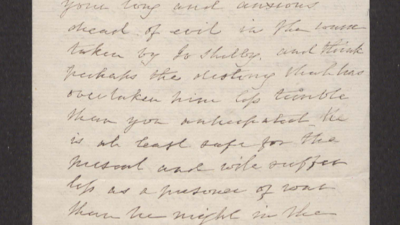 your long and anxious
dread of evil in the course
taken by Jo Shelby, and think
perhaps the destiny that has
overtaken him less terrible
than you anticipated. He
is at least safe for the
present and will suffer
less as a prisoner of war
than he might in the